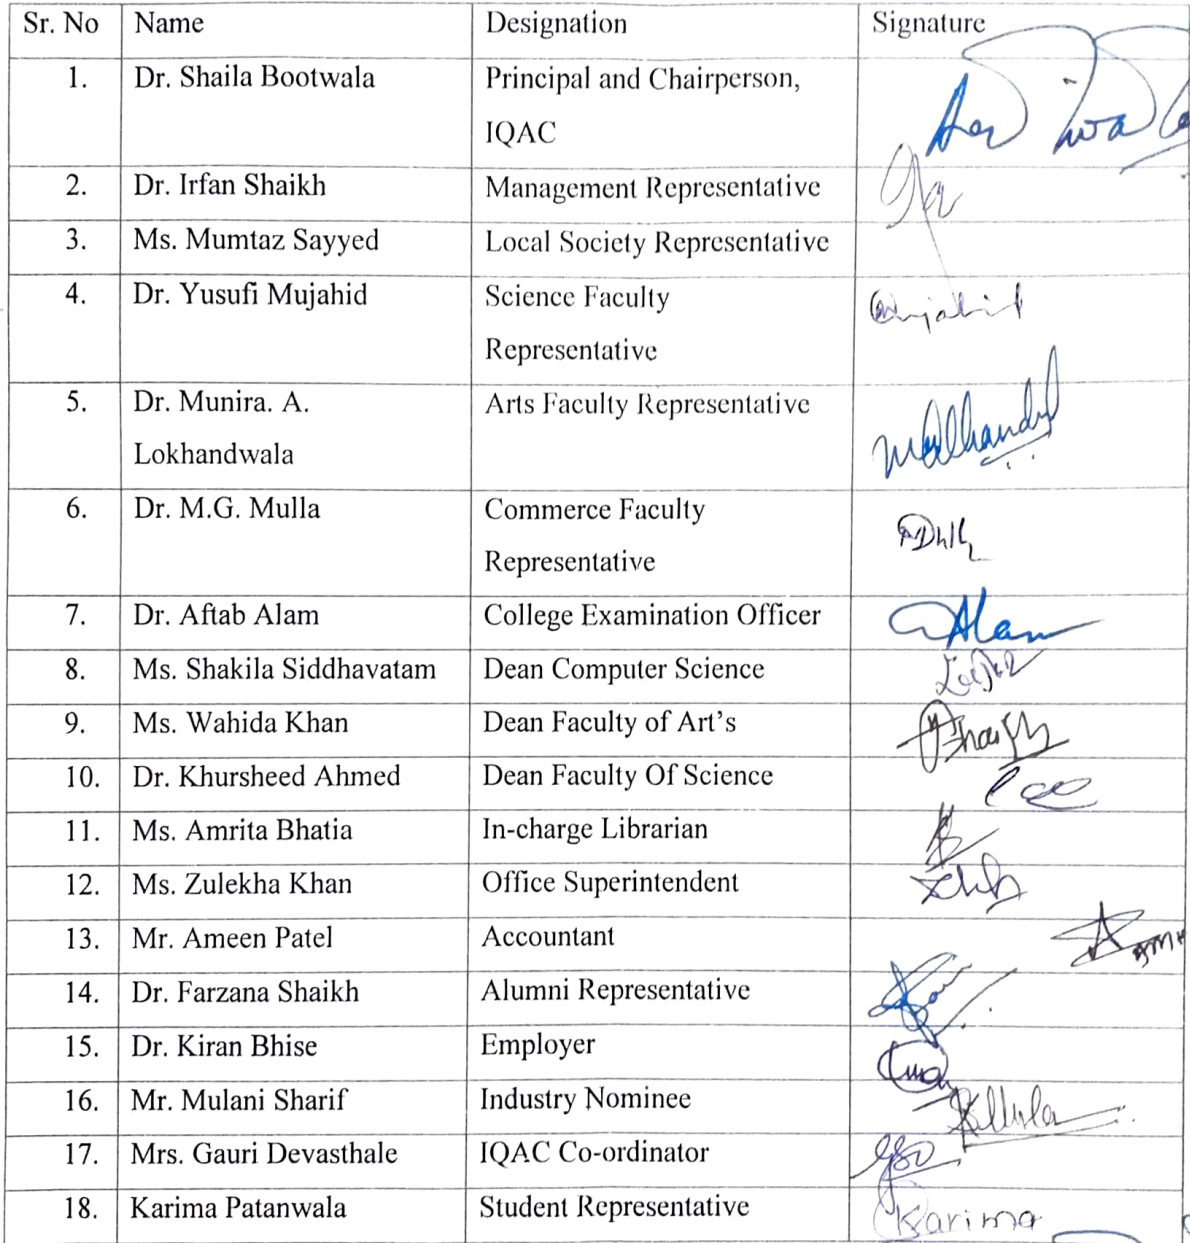 Sr. No Name Designation Signature
1. Dr. Shaila Bootwala Principal and Chairperson,
IQAC
2. Dr. Irfan Shaikh Management Representative
3. Ms. Mumtaz Sayyed Local Society Representative
4. Dr. Yusufi Mujahid Science Faculty
Representative
5. Dr. Munira. A. Arts Faculty Representative
Lokhandwala
6. Dr. M.G. Mulla Commerce Faculty
Representative
7. Dr. Aftab Alam College Examination Officer Alam
8. Ms. Shakila Siddhavatam Dean Computer Science
9. Ms. Wahida Khan Dean Faculty of Art’s
10. Dr. Khursheed Ahmed Dean Faculty Of Science
11. Ms. Amrita Bhatia In-charge Librarian
12. Ms. Zulekha Khan Office Superintendent
13. Mr. Ameen Patel Accountant
14. Dr. Farzana Shaikh Alumni Representative
15. Dr. Kiran Bhise Employer
16. Mr. Mulani Sharif Industry Nominee
17. Mrs. Gauri Devasthale IQAC Co-ordinator
18. Karima Patanwala Student Representative Karima